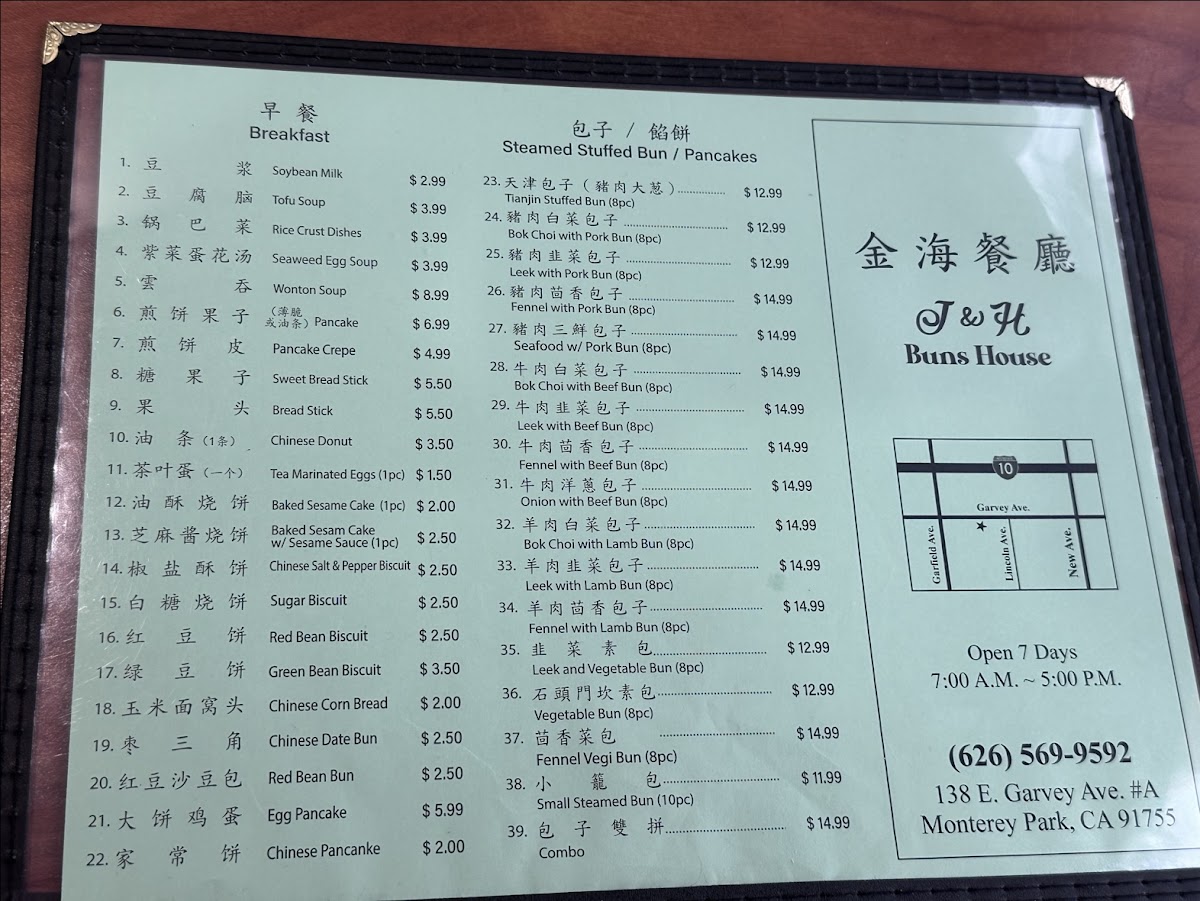 早餐
Breakfast
1. 豆浆 Soybean Milk $ 2.99
2. 豆腐脑 Tofu Soup $ 3.99
3. 锅巴菜 Rice Crust Dishes $ 3.99
4. 紫菜蛋花汤 Seaweed Egg Soup $ 3.99
5. 雲吞 Wonton Soup $ 8.99
6. 煎饼果子 (薄脆或油条) Pancake $ 6.99
7. 煎饼皮 Pancake Crepe $ 4.99
8. 糖果子 Sweet Bread Stick $ 5.50
9. 果头 Bread Stick $ 5.50
10. 油条 (1条) Chinese Donut $ 3.50
11. 茶叶蛋 (一个) Tea Marinated Eggs (1pc) $ 1.50
12. 油酥烧饼 Baked Sesame Cake (1pc) $ 2.00
13. 芝麻酱烧饼 Baked Sesam Cake w/ Sesame Sauce (1pc) $ 2.50
14. 椒盐酥饼 Chinese Salt & Pepper Biscuit $ 2.50
15. 白糖烧饼 Sugar Biscuit $ 2.50
16. 红豆饼 Red Bean Biscuit $ 2.50
17. 绿豆饼 Green Bean Biscuit $ 3.50
18. 玉米面窝头 Chinese Corn Bread $ 2.00
19. 枣三角 Chinese Date Bun $ 2.50
20. 红豆沙豆包 Red Bean Bun $ 2.50
21. 大饼鸡蛋 Egg Pancake $ 5.99
22. 家常饼 Chinese Pancanke $ 2.00
包子 / 餡餅
Steamed Stuffed Bun / Pancakes
23. 天津包子 (豬肉大葱) $ 12.99
Tianjin Stuffed Bun (8pc)
24. 豬肉白菜包子 $ 12.99
Bok Choi with Pork Bun (8pc)
25. 豬肉韭菜包子 $ 12.99
Leek with Pork Bun (8pc)
26. 豬肉茴香包子 $ 14.99
Fennel with Pork Bun (8pc)
27. 豬肉三鮮包子 $ 14.99
Seafood w/ Pork Bun (8pc)
28. 牛肉白菜包子 $ 14.99
Bok Choi with Beef Bun (8pc)
29. 牛肉韭菜包子 $ 14.99
Leek with Beef Bun (8pc)
30. 牛肉茴香包子 $ 14.99
Fennel with Beef Bun (8pc)
31. 牛肉洋蔥包子 $ 14.99
Onion with Beef Bun (8pc)
32. 羊肉白菜包子 $ 14.99
Bok Choi with Lamb Bun (8pc)
33. 羊肉韭菜包子 $ 14.99
Leek with Lamb Bun (8pc)
34. 羊肉茴香包子 $ 14.99
Fennel with Lamb Bun (8pc)
35. 韭菜素包 $ 12.99
Leek and Vegetable Bun (8pc)
36. 石頭門坎素包 $ 12.99
Vegetable Bun (8pc)
37. 茴香菜包 $ 14.99
Fennel Vegi Bun (8pc)
38. 小籠包 $ 11.99
Small Steamed Bun (10pc)
39. 包子雙拼 $ 14.99
Combo
金海餐廳
J & H
Buns House
10
Garvey Ave.
Garfield Ave.
Lincoln Ave.
New Ave.
Open 7 Days
7:00 A.M. ~ 5:00 P.M.
(626) 569-9592
138 E. Garvey Ave. #A
Monterey Park, CA 91755